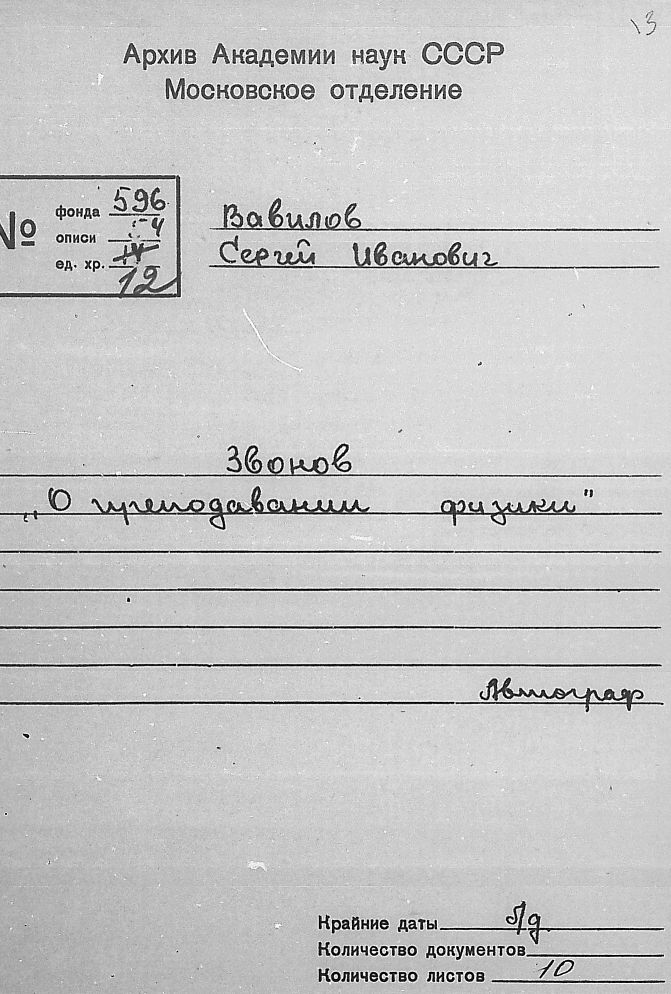 13
Архив Академии наук СССР
Московское отделение
№
фонда 596
описи 4
ед. хр. IV
12
Вавилов
Сергей Иванович
Звонов
„О преподавании физики"
Автограф
Крайние даты б/д
Количество документов
Количество листов 10